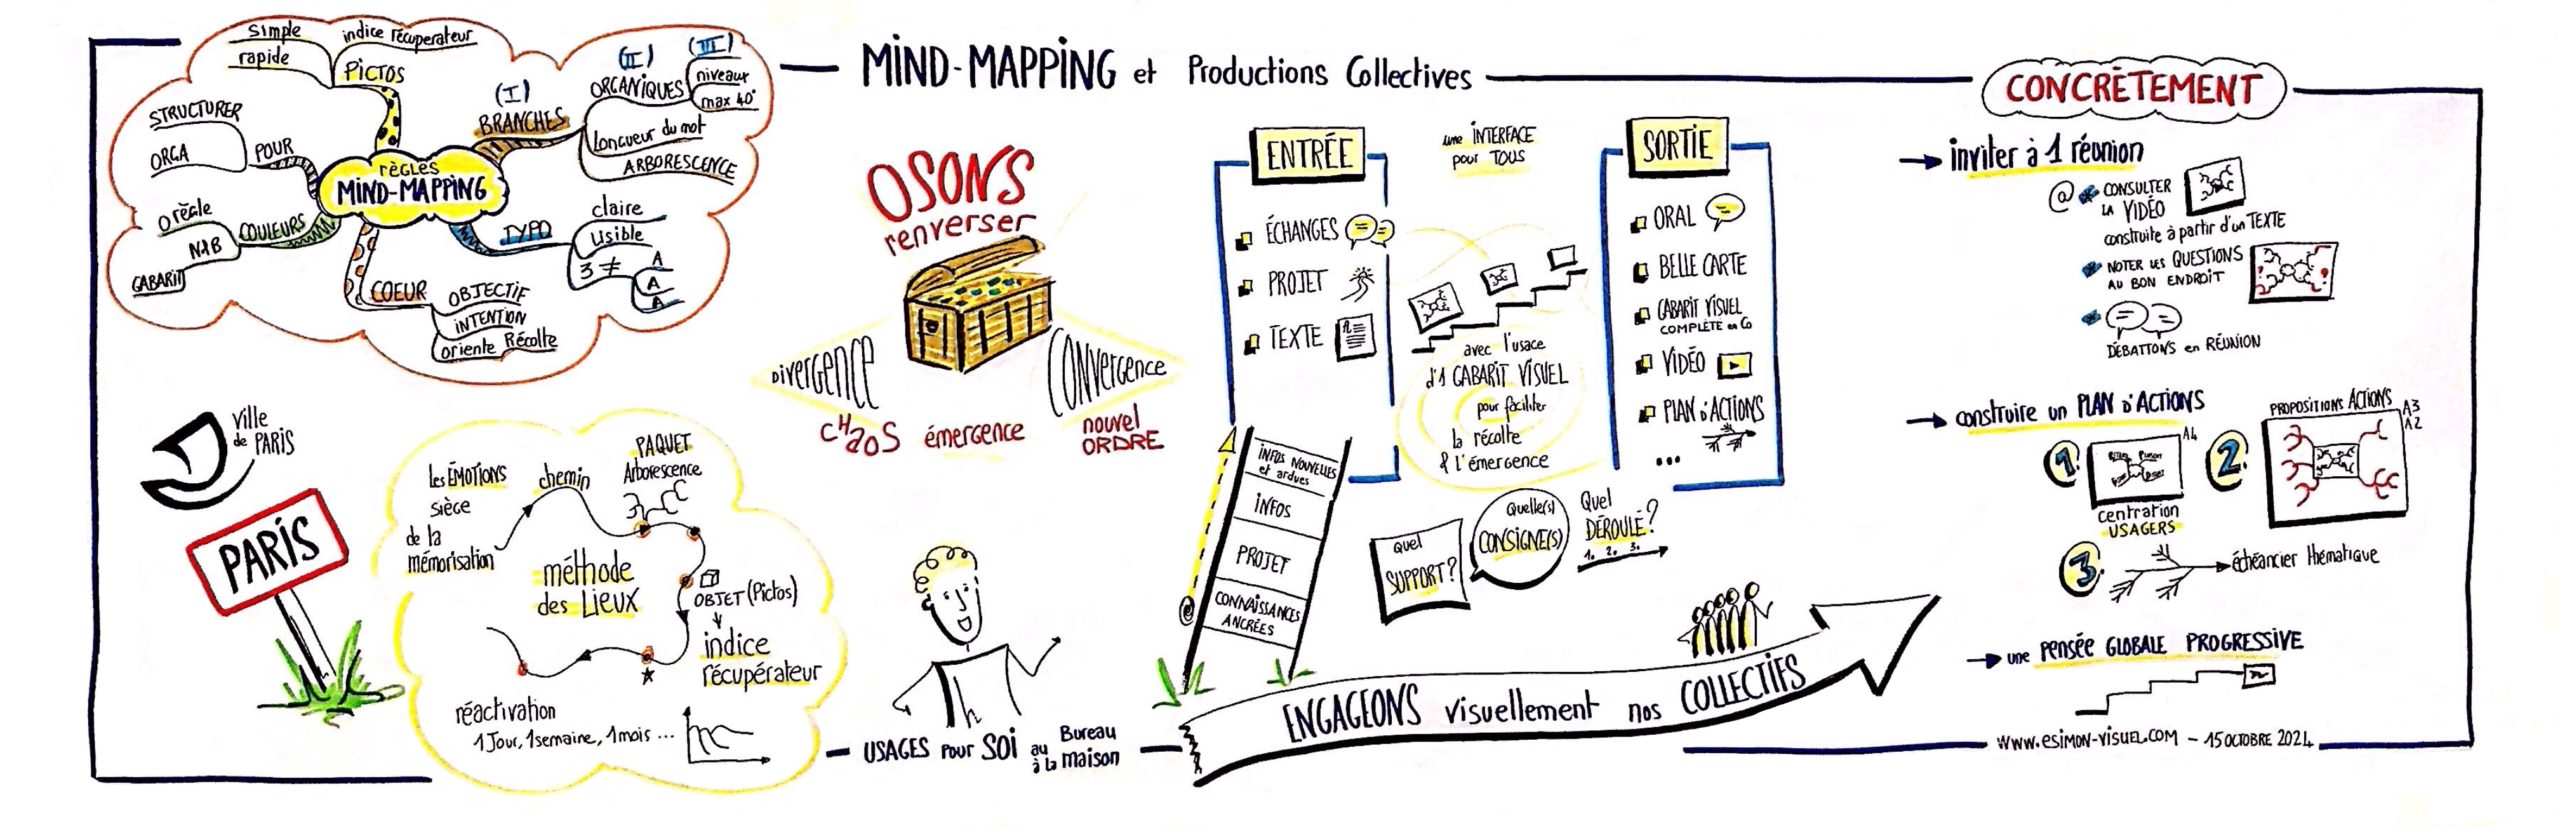 MIND-MAPPING et Productions Collectives
règles
MIND-MAPPING
simple
rapide
indice récuperateur
PICTOS
STRUCTURER
ORGA
POUR
0 règle
N&B
GABARIT
COULEURS
COEUR
OBJECTIF
INTENTION
oriente Récolte
TYPO
claire
lisible
3 ≠
A
A
A
(I)
BRANCHES
(II)
ORGANIQUES
(III)
niveaux
max 40°
Longueur du mot
ARBORESCENCE
Ville
de PARIS
PARIS
les ÉMOTIONS
siège
de la
mémorisation
chemin
PAQUET
Arborescence
méthode
des LIEUX
OBJET (Pictos)
indice
récupérateur
réactivation
1 Jour, 1 semaine, 1 mois ...
OSONS
renverser
DIVERGENCE
CONVERGENCE
CHaOS
émergence
nouvel
ORDRE
USAGES POUR SOI au Bureau
à la maison
ENTRÉE
ÉCHANGES
PROJET
TEXTE
une INTERFACE
pour TOUS
avec l'usage
d'1 GABARIT VISUEL
pour faciliter
la récolte
& l'émergence
SORTIE
ORAL
BELLE CARTE
GABARIT VISUEL
COMPLÈTE en Co
VIDÉO
PLAN D'ACTIONS
...
INFOS NOUVELLES
et ardues
INFOS
PROJET
CONNAISSANCES
ANCRÉES
quel
SUPPORT?
Quelle(s)
CONSIGNE(S)
Quel
DÉROULÉ?
1. 2. 3.
ENGAGEONS visuellement nos COLLECTIFS
CONCRÈTEMENT
inviter à 1 réunion
@ CONSULTER
LA VIDÉO
construite à partir d'un TEXTE
NOTER LES QUESTIONS
AU BON ENDROIT
DÉBATTONS en RÉUNION
construire un PLAN D'ACTIONS
1.
A4
centration
USAGERS
2.
PROPOSITIONS ACTIONS
A3
A2
3.
échéancier thématique
une PENSÉE GLOBALE PROGRESSIVE
www.esimon-visuel.com – 15 OCTOBRE 2024